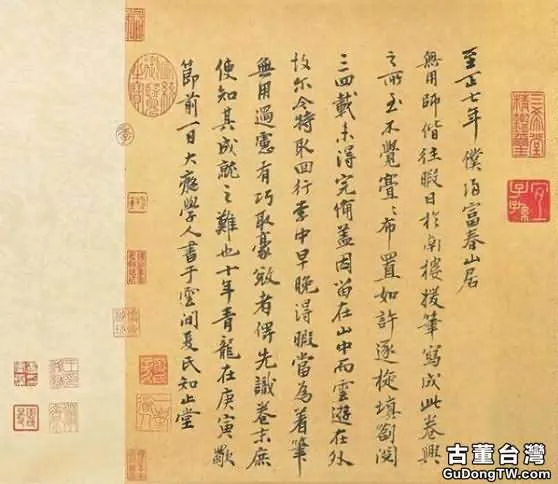 至正七年僕歸富春山居
無用師偕往暇日於南樓援筆寫成此卷興
之所至不覺亹亹布置如許逐旋填劄閱
三四載未得完備盖因留在山中而雲遊在外
故尔今特取回行李中早晚得暇當為着筆
無用過慮有巧取豪敓者俾先識卷末庶
使知其成就之難也十年青龍在庚寅歜
節前一日大癡學人書于雲間夏氏知止堂
三希堂精鑑璽
宜子孫
古董台灣
GudongTW.com